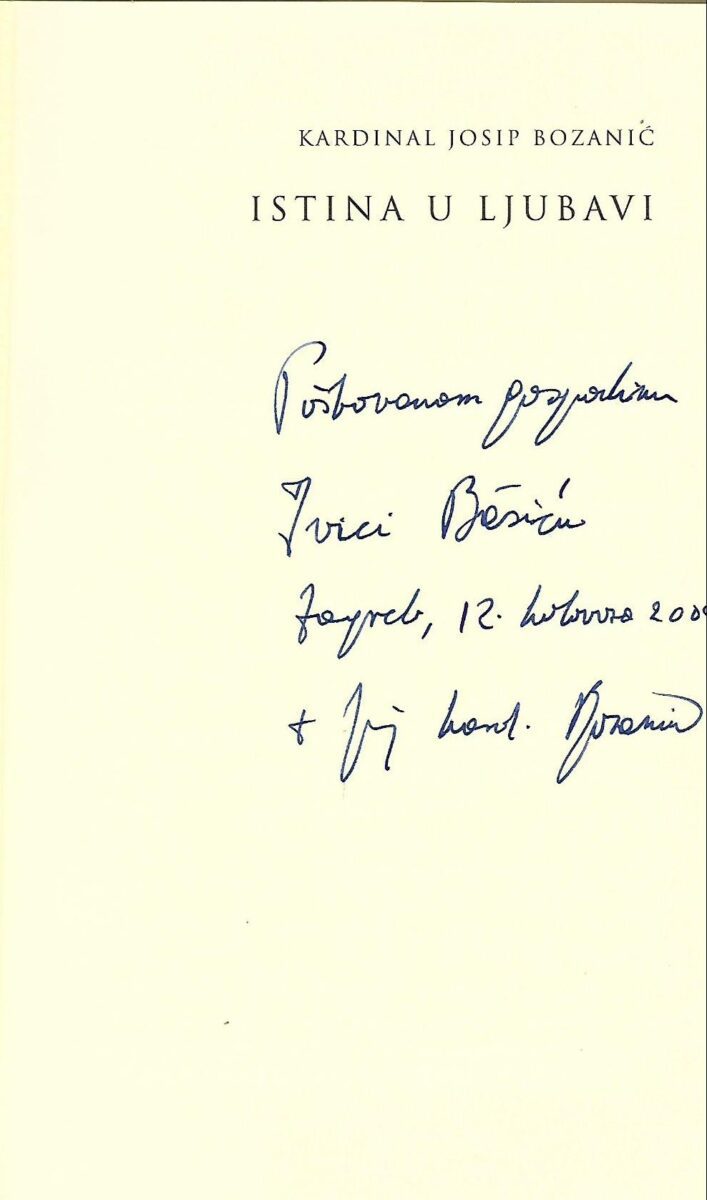 KARDINAL JOSIP BOZANIĆ
ISTINA U LJUBAVI
Poštovanom gospodinu
Ivici Bašiću
Zagreb, 12. kolovoza
+ Josip kard. Bozanić